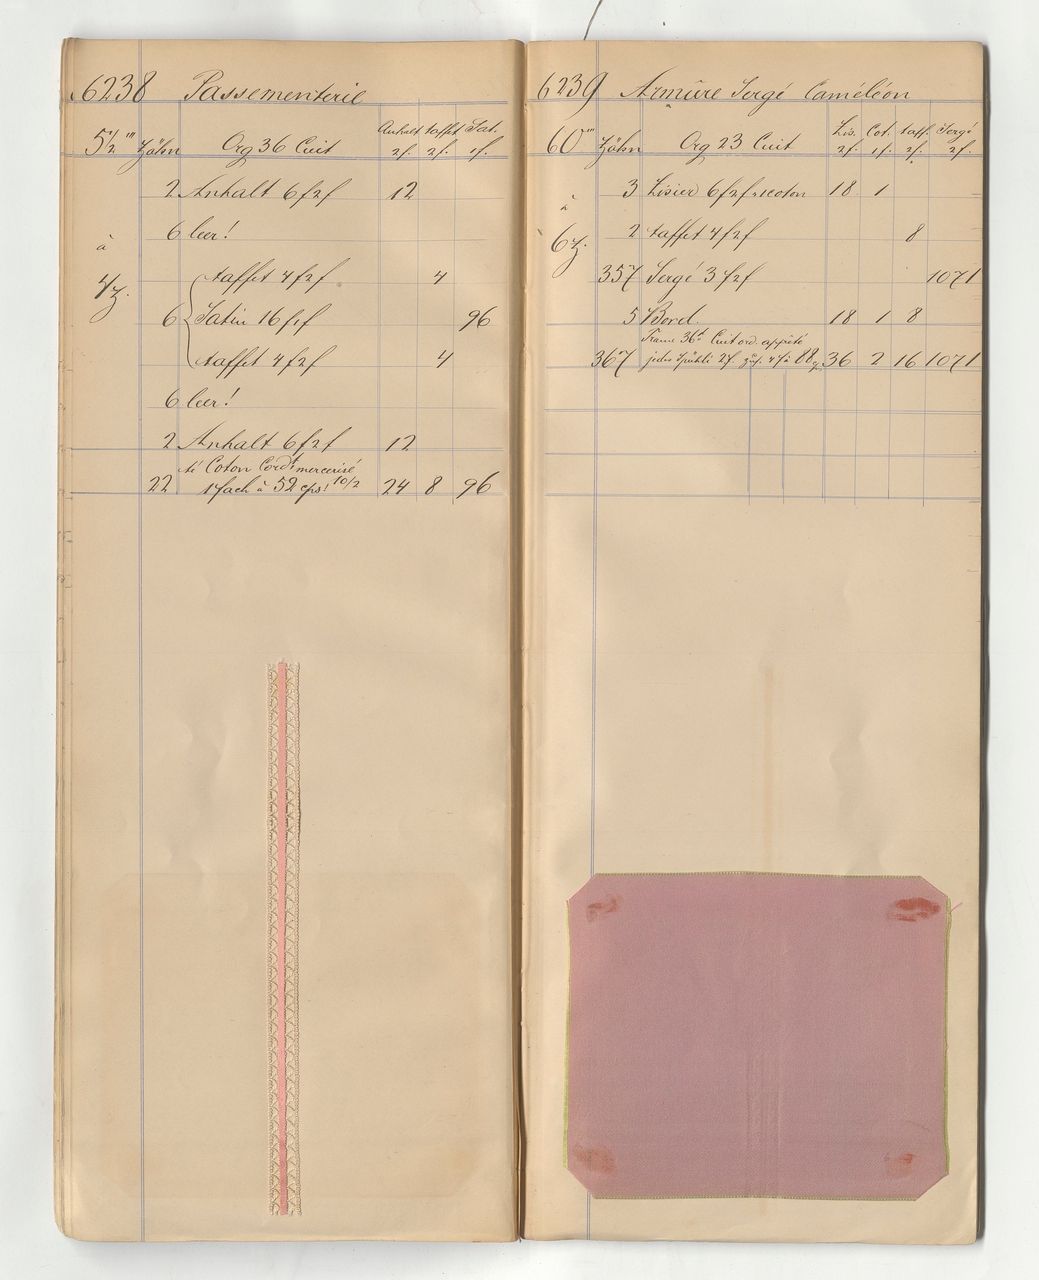 6238 Passementerie
Anhalt taffet Sat.
5 1/2''' Zähn Org 36 Cuit 2f. 2f. 1f.
2 Anhalt 6f2f 12
à 6 leer!
4z. taffet 4f2f 4
6 Satin 16f1f 96
taffet 4f2f 4
6 leer!
2 Anhalt 6f2f 12
Coton Cord^t mercerisé
22 1fach à 52 cps! 10/2 24 8 96
6239 Armûre Sergé Caméléon
Lis. Cot. taff. Sergé
60''' Zähn Org 23 Cuit 2f. 1f. 2f. 2f.
à 3 Lisier 6f2f 1coton 18 1
6z. 2 taffet 4f2f 8
357 Sergé 3f2f 1071
5 Bord. 18 1 8
Trame 36^d Cuit ord. apprêté
367 jedes Spühli 2f. 4f à 88 36 2 16 1071